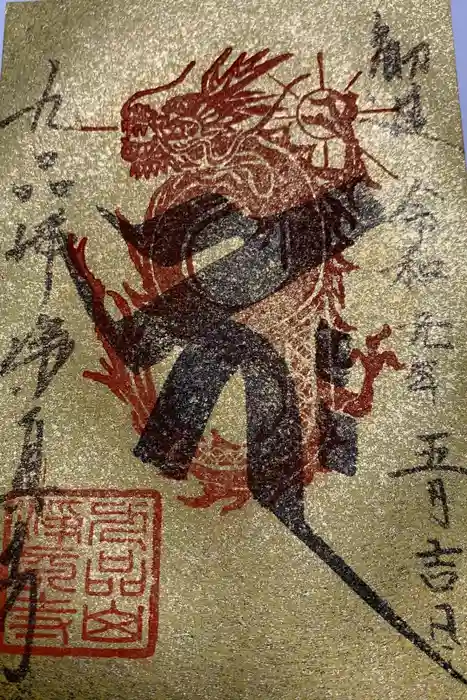 令和元年五月吉日
九品 浄真寺
九品山
浄真寺